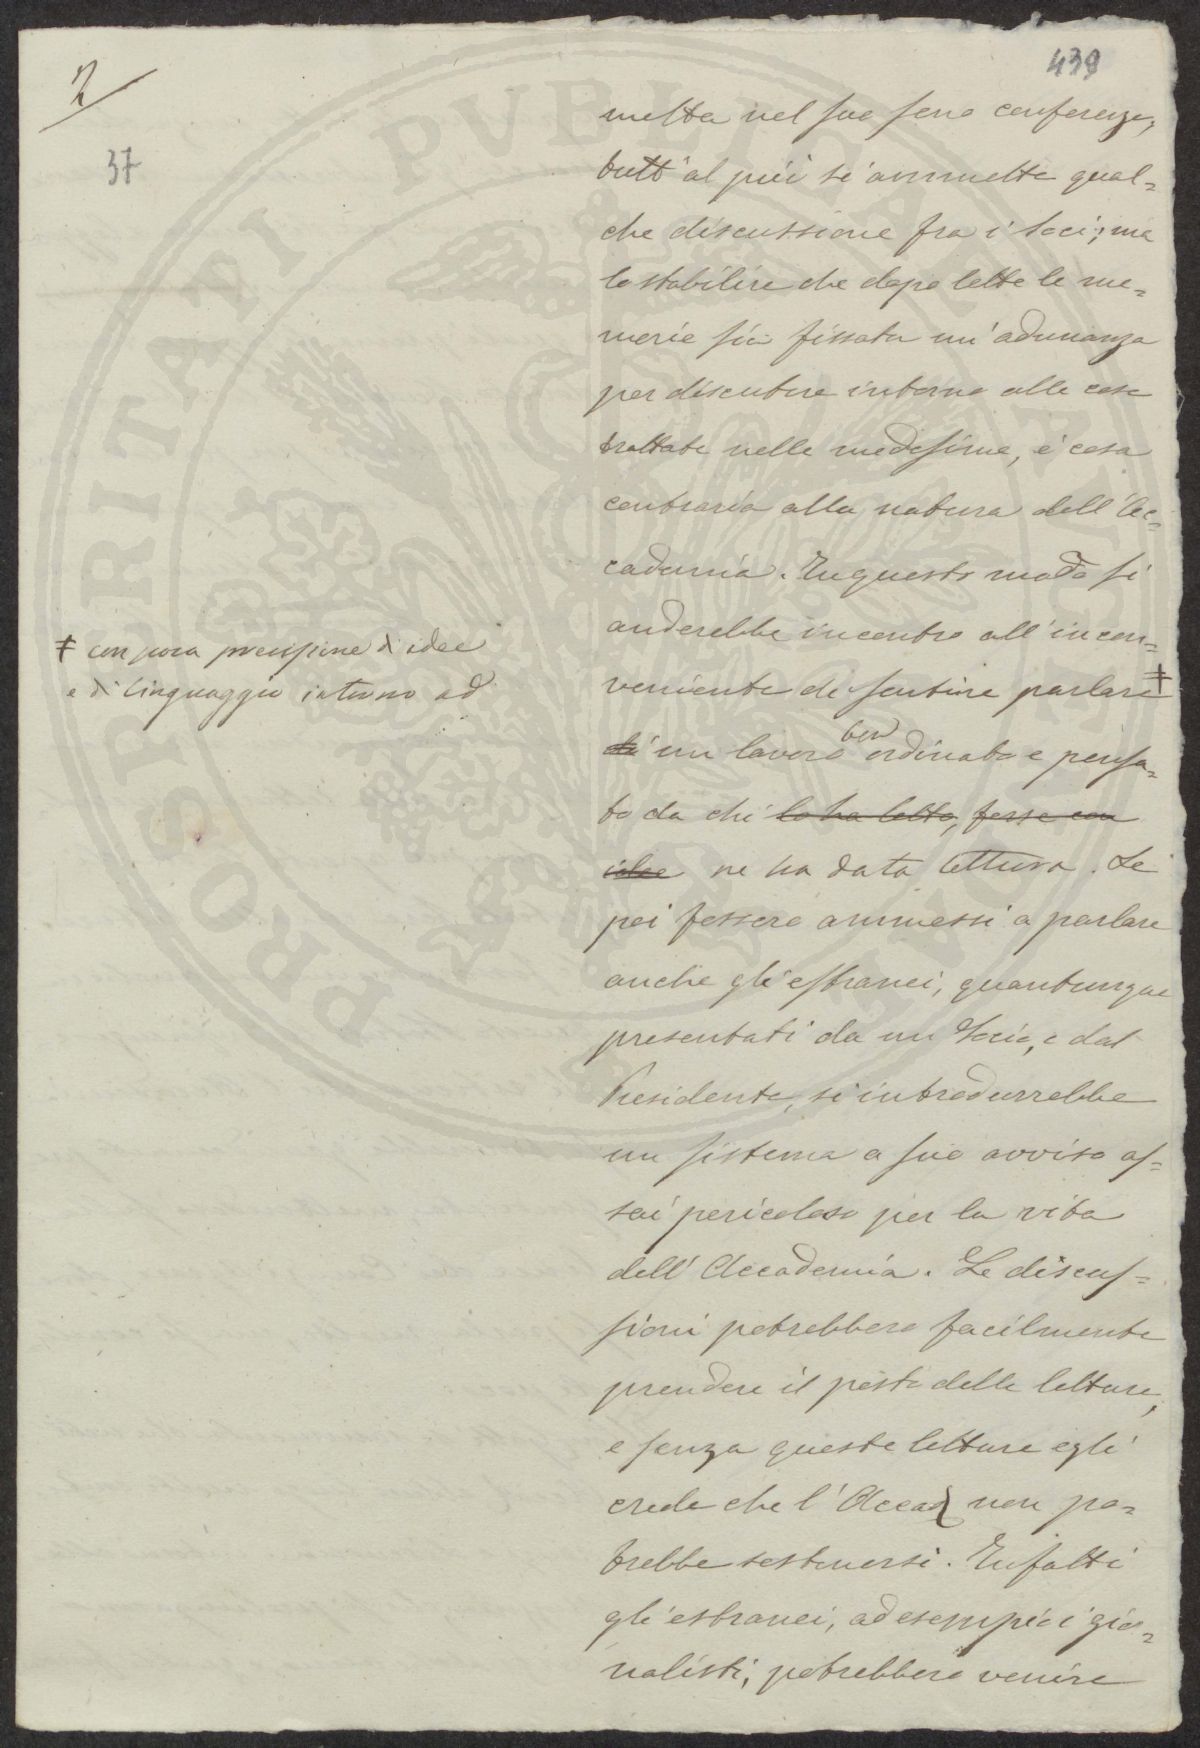 2
439
37
metta nel suo seno conferenze,
tutt'al più si ammette qual=
che discussione fra i Soci; ma
lo stabilire che dopo lette le me=
morie sia fissata un'adunanza
per discutere intorno alle cose
trattate nelle medesime, è cosa
contraria alla natura dell'Ac=
cademia. In questo modo si
anderebbe incontro all'incon=
veniente di sentire parlare ‡
‡ con poca precisione di idee
e di linguaggio intorno ad
di un lavoro ben ordinato e pensa=
to da chi lo ha letto, forse con
idee ne ha data lettura. Se
poi fossero ammessi a parlare
anche gli estranei, quantunque
presentati da un Socio, e dal
Presidente, si introdurrebbe
un sistema a suo avviso as=
sai pericoloso per la vita
dell'Accademia. Le discus=
sioni potrebbero facilmente
prendere il posto delle letture,
e senza queste letture egli
crede che l'Accad non po=
trebbe sostenersi. Infatti
gli estranei, ad esempio i gior=
nalisti, potrebbero venire
PROSPERITATI PVBLICAE